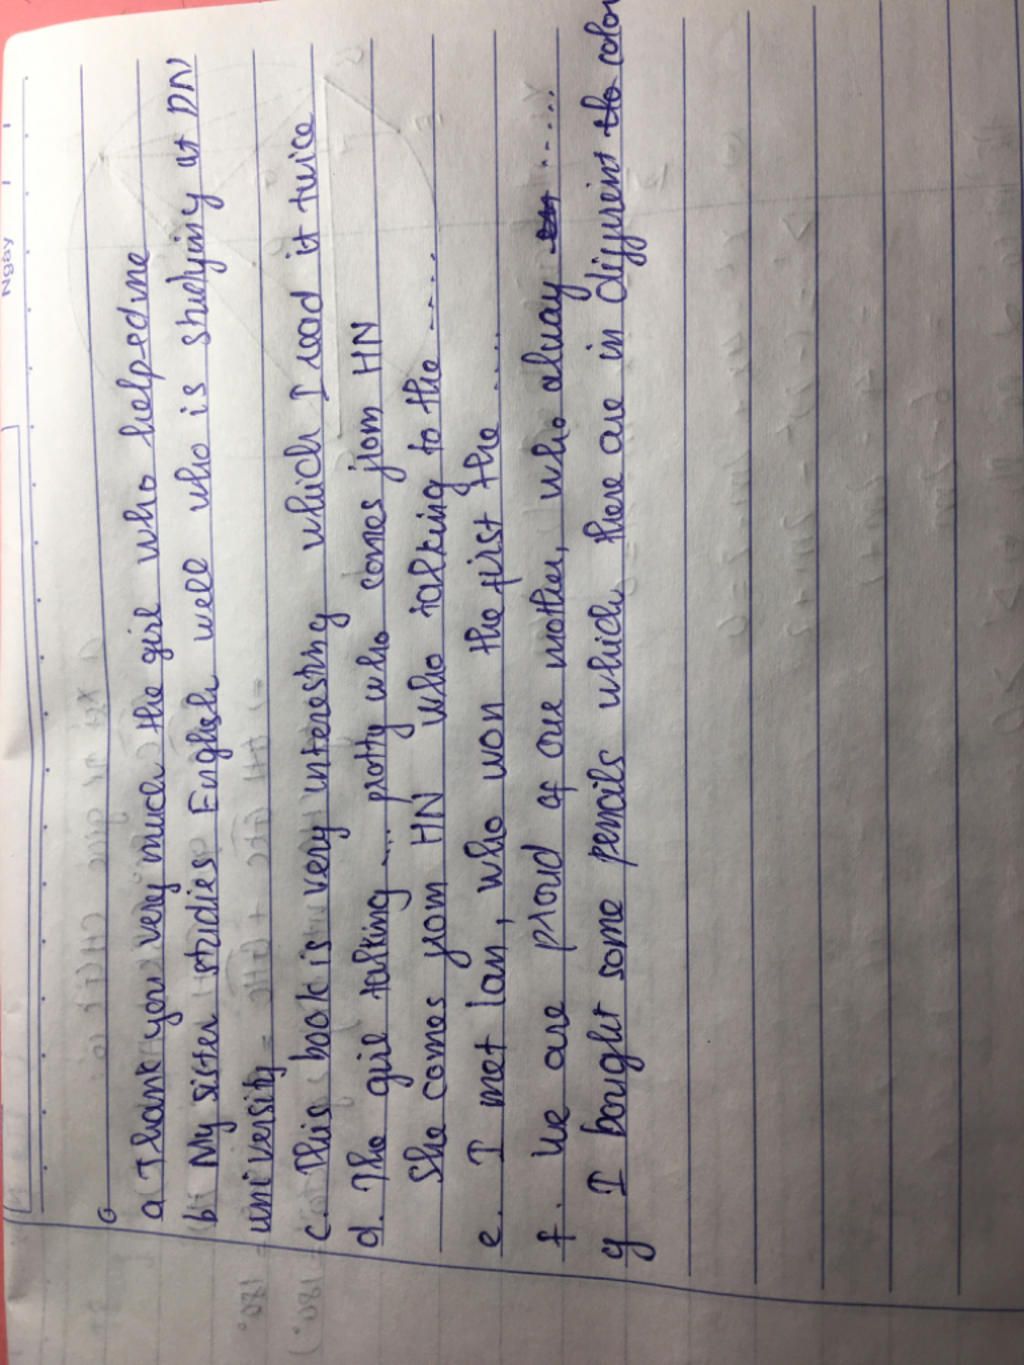 Ngày
6
a Thank you very much the girl who helped me
b. My sister studies English well who is studying at DN
university
c. This book is very interesting which I read it twice
d. The girl talking .... pretty who comes from HN
She comes from HN who talking to the .....
e. I met Lan, who won the first the .....
f. We are proud of our mother, who alway .....
g I bought some pencils which there are in different colou
180°
180°)